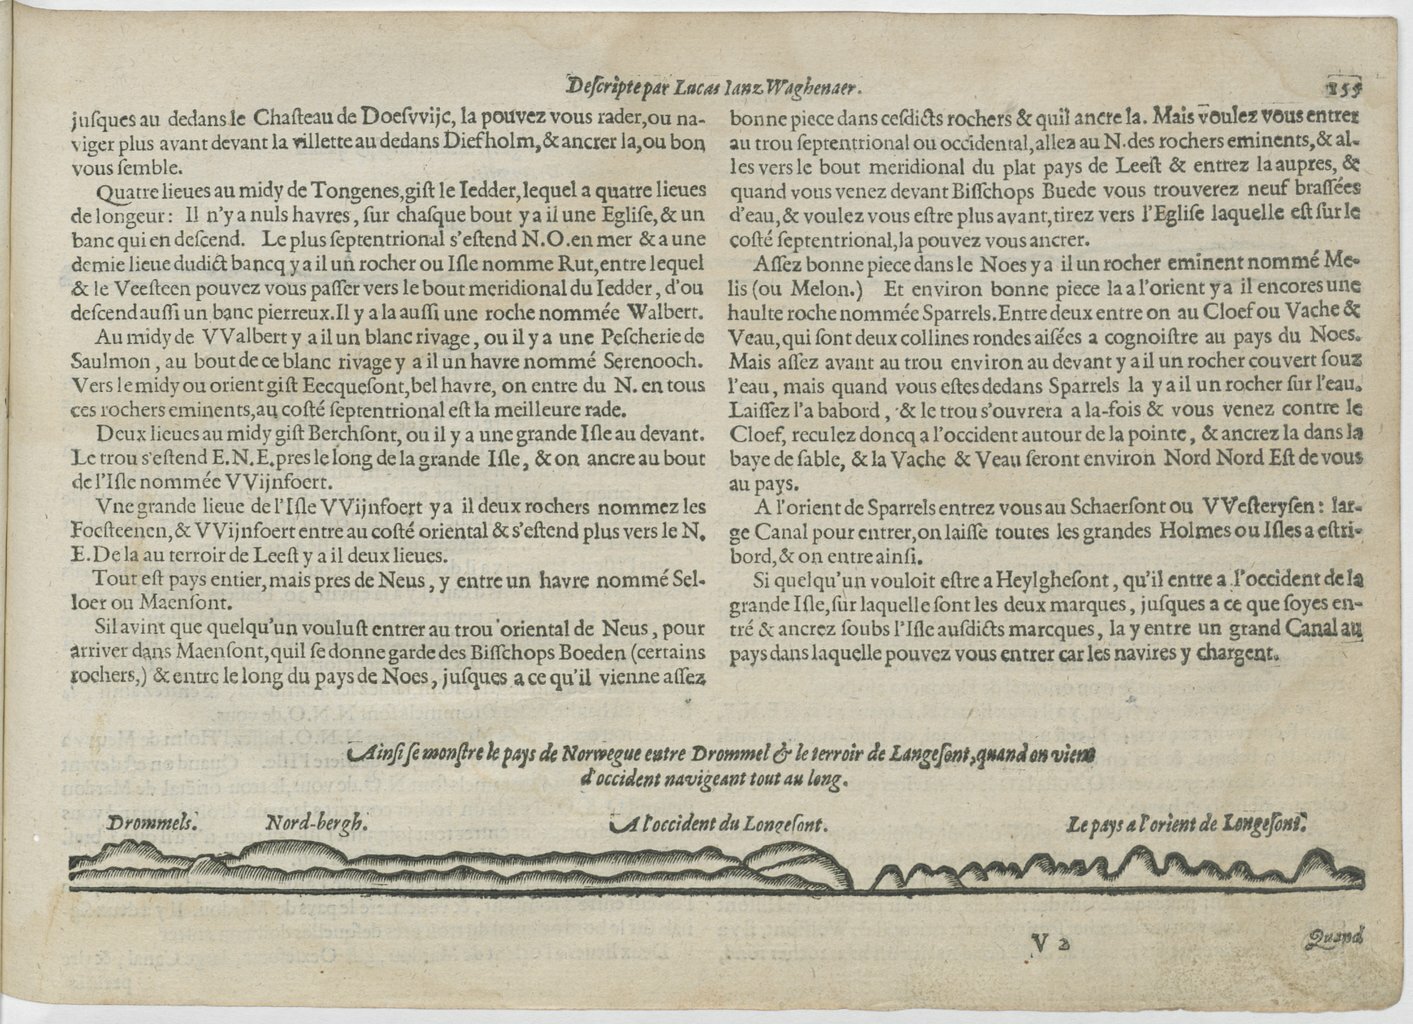 Descripte par Lucas Ianz Waghenaer.
155
juſques au dedans le Chaſteau de Doeſvvijc, la pouvez vous rader, ou na-
viger plus avant devant la villette au dedans Diefholm, & ancrer la, ou bon
vous ſemble.
Quatre lieues au midy de Tongenes, giſt le Iedder, lequel a quatre lieues
de longeur: Il n'y a nuls havres, ſur chaſque bout y a il une Egliſe, & un
banc qui en deſcend. Le plus ſeptentrional s'eſtend N.O. en mer & a une
demie lieue dudict bancq y a il un rocher ou Iſle nomme Rut, entre lequel
& le Veeſteen pouvez vous paſſer vers le bout meridional du Iedder, d'ou
deſcend auſſi un banc pierreux. Il y a la auſſi une roche nommée Walbert.
Au midy de VValbert y a il un blanc rivage, ou il y a une Peſcherie de
Saulmon, au bout de ce blanc rivage y a il un havre nommé Serenooch.
Vers le midy ou orient giſt Eecqueſont, bel havre, on entre du N. en tous
ces rochers eminents, au coſté ſeptentrional eſt la meilleure rade.
Deux lieues au midy giſt Berchſont, ou il y a une grande Iſle au devant.
Le trou s'eſtend E.N.E. pres le long de la grande Iſle, & on ancre au bout
de l'Iſle nommée VVijnfoert.
Vne grande lieue de l'Iſle VVijnfoert y a il deux rochers nommez les
Foeſteenen, & VVijnfoert entre au coſté oriental & s'eſtend plus vers le N.
E. De la au terroir de Leeſt y a il deux lieues.
Tout eſt pays entier, mais pres de Neus, y entre un havre nommé Sel-
loer ou Maenſont.
Sil avint que quelqu'un vouluſt entrer au trou oriental de Neus, pour
arriver dans Maenſont, quil ſe donne garde des Biſſchops Boeden (certains
rochers,) & entre le long du pays de Noes, juſques a ce qu'il vienne aſſez
bonne piece dans ceſdicts rochers & quil ancre la. Mais voulez vous entrer
au trou ſeptentrional ou occidental, allez au N. des rochers eminents, & al-
les vers le bout meridional du plat pays de Leeſt & entrez la aupres, &
quand vous venez devant Biſſchops Buede vous trouverez neuf braſſées
d'eau, & voulez vous eſtre plus avant, tirez vers l'Egliſe laquelle eſt ſur le
coſté ſeptentrional, la pouvez vous ancrer.
Aſſez bonne piece dans le Noes y a il un rocher eminent nommé Me-
lis (ou Melon.) Et environ bonne piece la a l'orient y a il encores une
haulte roche nommée Sparrels. Entre deux entre on au Cloef ou Vache &
Veau, qui ſont deux collines rondes aiſées a cognoiſtre au pays du Noes.
Mais aſſez avant au trou environ au devant y a il un rocher couvert ſouz
l'eau, mais quand vous eſtes dedans Sparrels la y a il un rocher ſur l'eau.
Laiſſez l'a babord, & le trou s'ouvrera a la-fois & vous venez contre le
Cloef, reculez doncq a l'occident autour de la pointe, & ancrez la dans la
baye de ſable, & la Vache & Veau ſeront environ Nord Nord Eſt de vous
au pays.
A l'orient de Sparrels entrez vous au Schaerſont ou VVeſteryſen: lar-
ge Canal pour entrer, on laiſſe toutes les grandes Holmes ou Iſles a eſtri-
bord, & on entre ainſi.
Si quelqu'un vouloit eſtre a Heylgheſont, qu'il entre a l'occident de la
grande Iſle, ſur laquelle ſont les deux marques, juſques a ce que ſoyes en-
tré & ancrez ſoubs l'Iſle auſdicts marcques, la y entre un grand Canal au
pays dans laquelle pouvez vous entrer car les navires y chargent.
Ainſi ſe monſtre le pays de Norwegue entre Drommel & le terroir de Langeſont, quand on vient
d'occident navigeant tout au long.
Drommels. Nord-bergh. A l'occident du Longeſont. Le pays a l'orient de Longeſont.
V 2
Quand